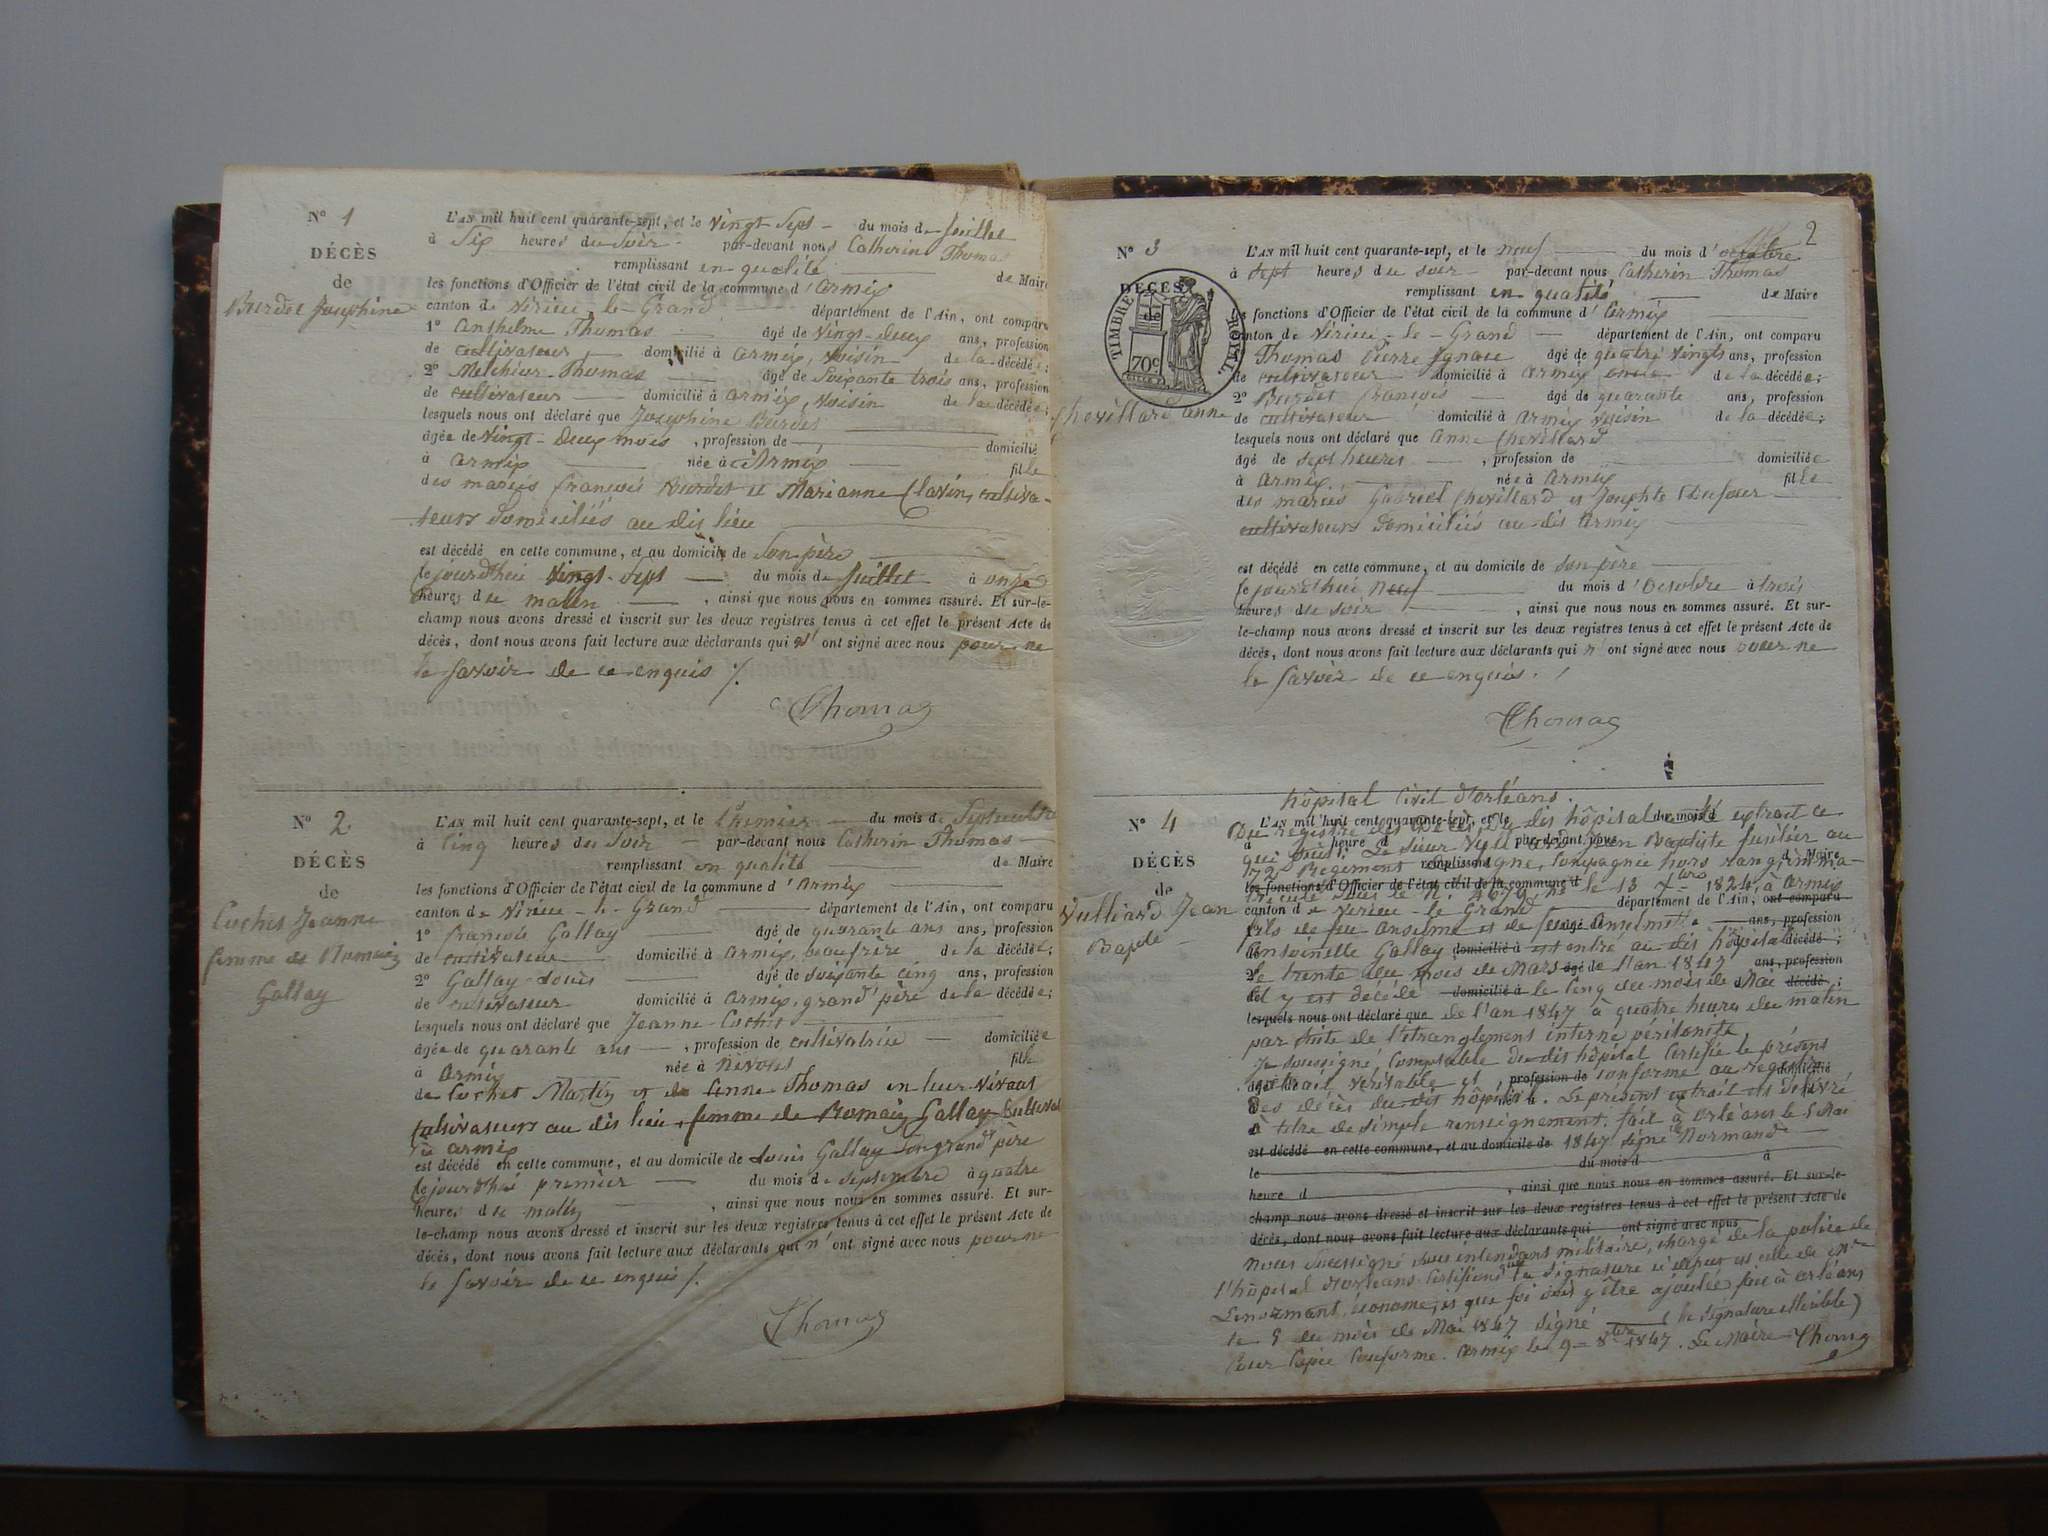 N° 1
DÉCÈS
de
Burdet Josephine
L'AN mil huit cent quarante-sept, et le vingt sept du mois de Juillet
à Six heures du Soir par-devant nous Catherin Thomas
remplissant en qualité de Maire
les fonctions d'Officier de l'état civil de la commune d'Armix
canton de Virieu-le-Grand département de l'Ain, ont comparu
1° Anthelme Thomas âgé de vingt-deux ans, profession
de cultivateur domicilié à Armix, voisin de la décédée;
2° Melchior Thomas âgé de Soixante trois ans, profession
de cultivateur domicilié à Armix, voisin de la décédée;
lesquels nous ont déclaré que Josephine Burdet
âgée de vingt-deux mois, profession de domicilié
à Armix née à Armix fille
des mariés françois Burdet et Marianne Clavin, cultiva-
teurs domiciliés au dit lieu
est décédé en cette commune, et au domicile de Son père
le jourd'hui vingt-sept du mois de Juillet à onze
heures du matin, ainsi que nous nous en sommes assuré. Et sur-le-
champ nous avons dressé et inscrit sur les deux registres tenus à cet effet le présent Acte de
décès, dont nous avons fait lecture aux déclarants qui n'ont signé avec nous pour ne
le Savoir de ce enquis ./.
Thomas
N° 2
DÉCÈS
de
Cochet Jeanne
femme de Romain
Gallay
L'AN mil huit cent quarante-sept, et le Premier du mois de Septembre
à Cinq heures du Soir par-devant nous Catherin Thomas
remplissant en qualité de Maire
les fonctions d'Officier de l'état civil de la commune d'Armix
canton de Virieu-le-Grand département de l'Ain, ont comparu
1° françois Gallay âgé de quarante ans ans, profession
de cultivateur domicilié à Armix, beaufrère de la décédée;
2° Gallay Louis âgé de soixante cinq ans, profession
de cultivateur domicilié à Armix, grand'père de la décédée;
lesquels nous ont déclaré que Jeanne Cochet
âgée de quarante ans, profession de cultivatrice domiciliée
à Armix née à fille
de Cochet Martin et de Anne Thomas en leur vivant
cultivateurs au dit lieu, femme de Romain Gallay
à Armix
est décédé en cette commune, et au domicile de Louis Gallay son grand père
le jourd'hui premier du mois de Septembre à quatre
heures du matin, ainsi que nous nous en sommes assuré. Et sur-
le-champ nous avons dressé et inscrit sur les deux registres tenus à cet effet le présent Acte de
décès, dont nous avons fait lecture aux déclarants qui n'ont signé avec nous pour ne
le Savoir de ce enquis /.
Thomas
2
N° 3
DÉCÈS
de
TIMBRE ROYAL
70c
Chevillard Anne
L'AN mil huit cent quarante-sept, et le neuf du mois d'octobre
à sept heures du soir par-devant nous Catherin Thomas
remplissant en qualité de Maire
les fonctions d'Officier de l'état civil de la commune d'Armix
canton de Virieu-le-Grand département de l'Ain, ont comparu
Thomas Pierre Ignace âgé de quatre vingts ans, profession
de cultivateur domicilié à Armix de la décédée;
2° Burdet françois âgé de quarante ans, profession
de cultivateur domicilié à Armix voisin de la décédée;
lesquels nous ont déclaré que Anne Chevillard
âgé de sept heures, profession de domiciliée
à Armix née à Armix fille
des mariés Gabriel Chevillard et Josephte Dufour
cultivateurs domiciliés au dit Armix
est décédé en cette commune, et au domicile de son père
le jourd'hui Neuf du mois d'Octobre à trois
heures du soir, ainsi que nous nous en sommes assuré. Et sur-
le-champ nous avons dressé et inscrit sur les deux registres tenus à cet effet le présent Acte de
décès, dont nous avons fait lecture aux déclarants qui n'ont signé avec nous pour ne
le Savoir de ce enquis. /
Thomas
N° 4
DÉCÈS
de
Vulliard Jean
Bapte
hôpital Civil d'orléans.
L'AN mil huit cent quarante-sept, et le du mois d
Du registre des décès du dit hôpital extrait ce
à heure d par-devant nous
qui suit: Le sieur Vulliard Jean Baptiste fusilier au
remplissant d Maire
72e Regiment Compagnie hors rang, imma-
les fonctions d'Officier de l'état civil de la commune d
triculé sous le N° 4679 né le 13 1824, à Armix
canton de Virieu-le-Grand département de l'Ain, ont comparu
fils de feu Anselme et de ans, profession
Antoinelle Gallay domicilié à est entré au dit hôpital décédé;
2° le trente du mois de Mars âgé de l'an 1847 ans, profession
Il y est décédé domicilié à le Cinq du mois de Mai décédé;
lesquels nous ont déclaré que de l'an 1847 à quatre heures du matin
par suite de l'étranglement interne péritonite
Je soussigné Comptable du dit hôpital Certifie le présent
extrait véritable et profession de conforme au registre domicilié
des décès du dit hôpital. Le présent extrait est délivré
à titre de simple renseignement. fait à Orléans le 5 Mai
est décédé en cette commune, et au domicile de 1847 signé Normand
le du mois d à
heure d, ainsi que nous nous en sommes assuré. Et sur-le-
champ nous avons dressé et inscrit sur les deux registres tenus à cet effet le présent Acte de
décès, dont nous avons fait lecture aux déclarants qui ont signé avec nous
Nous Soussigné Sous intendant militaire, chargé de la police de
l'hôpital d'orleans Certifions que la Signature ci dessus est celle de Mr
Lenormant, économe, et que foi doit y être ajoutée fait à Orléans
le 5 du mois de Mai 1847 signé (la signature illisible)
Pour Copie Conforme. Armix le 9 8bre 1847. Le Maire Thomas